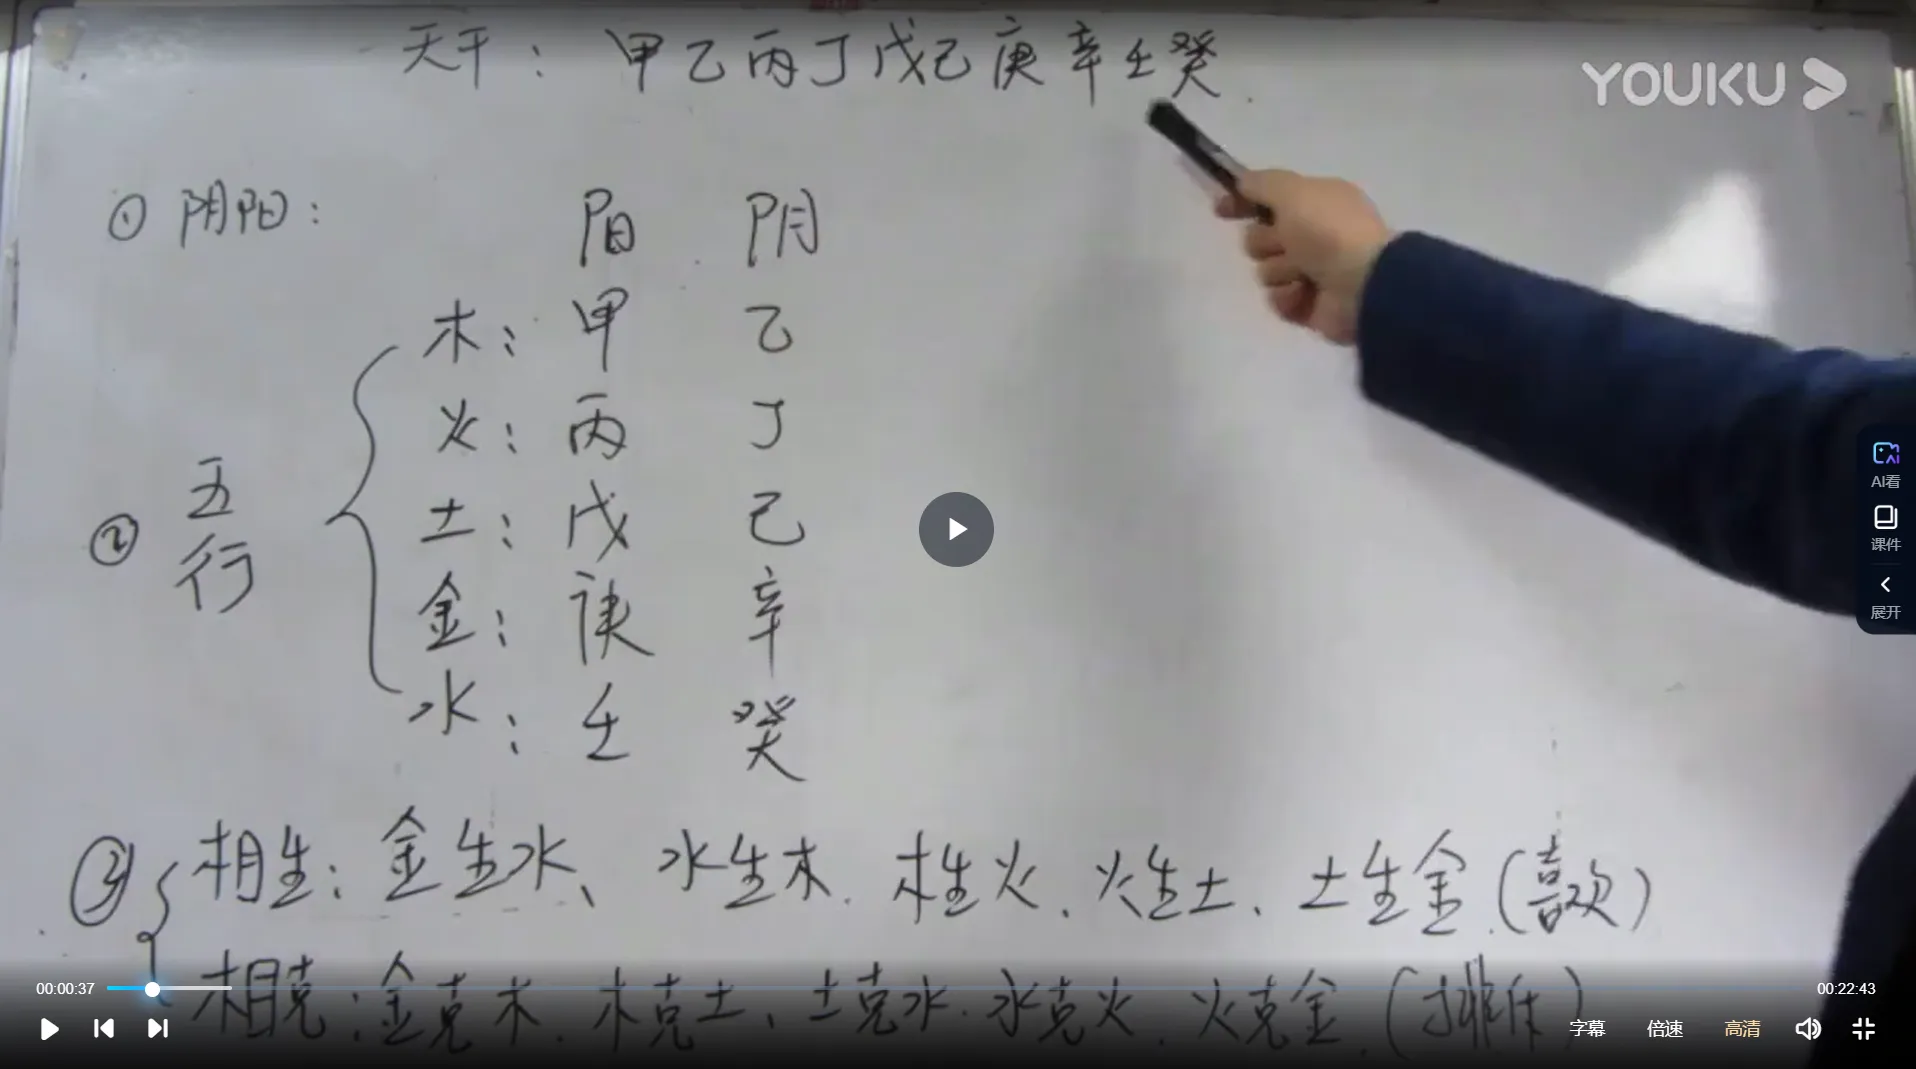 天干：甲乙丙丁戊己庚辛壬癸.
YOUKU
① 阴阳：
阳 阴
木：甲 乙
火：丙 丁
② 五行
土：戊 己
金：庚 辛
水：壬 癸
③ 相生：金生水、水生木.木生火.火生土.土生金.(喜欢)
相克：金克木.木克土、土克水.水克火.火克金.(排斥)
AI看
课件
展开
00:00:37
00:22:43
字幕 倍速 高清